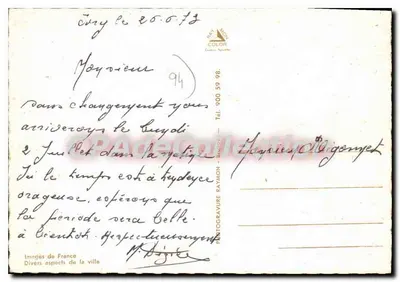 Ivry le 26.6.73
94
Monsieur
sans changement nous
arriverons le Lundi
2 Juillet dans la matinée
Ici le temps est à tendance
orageuse, espérons que
la période sera belle.
à bientôt. Respectueusement
COLOR
PHOTOGRAVURE RAYMON
Tel. 900 59 98
Images de France
Divers aspects de la ville